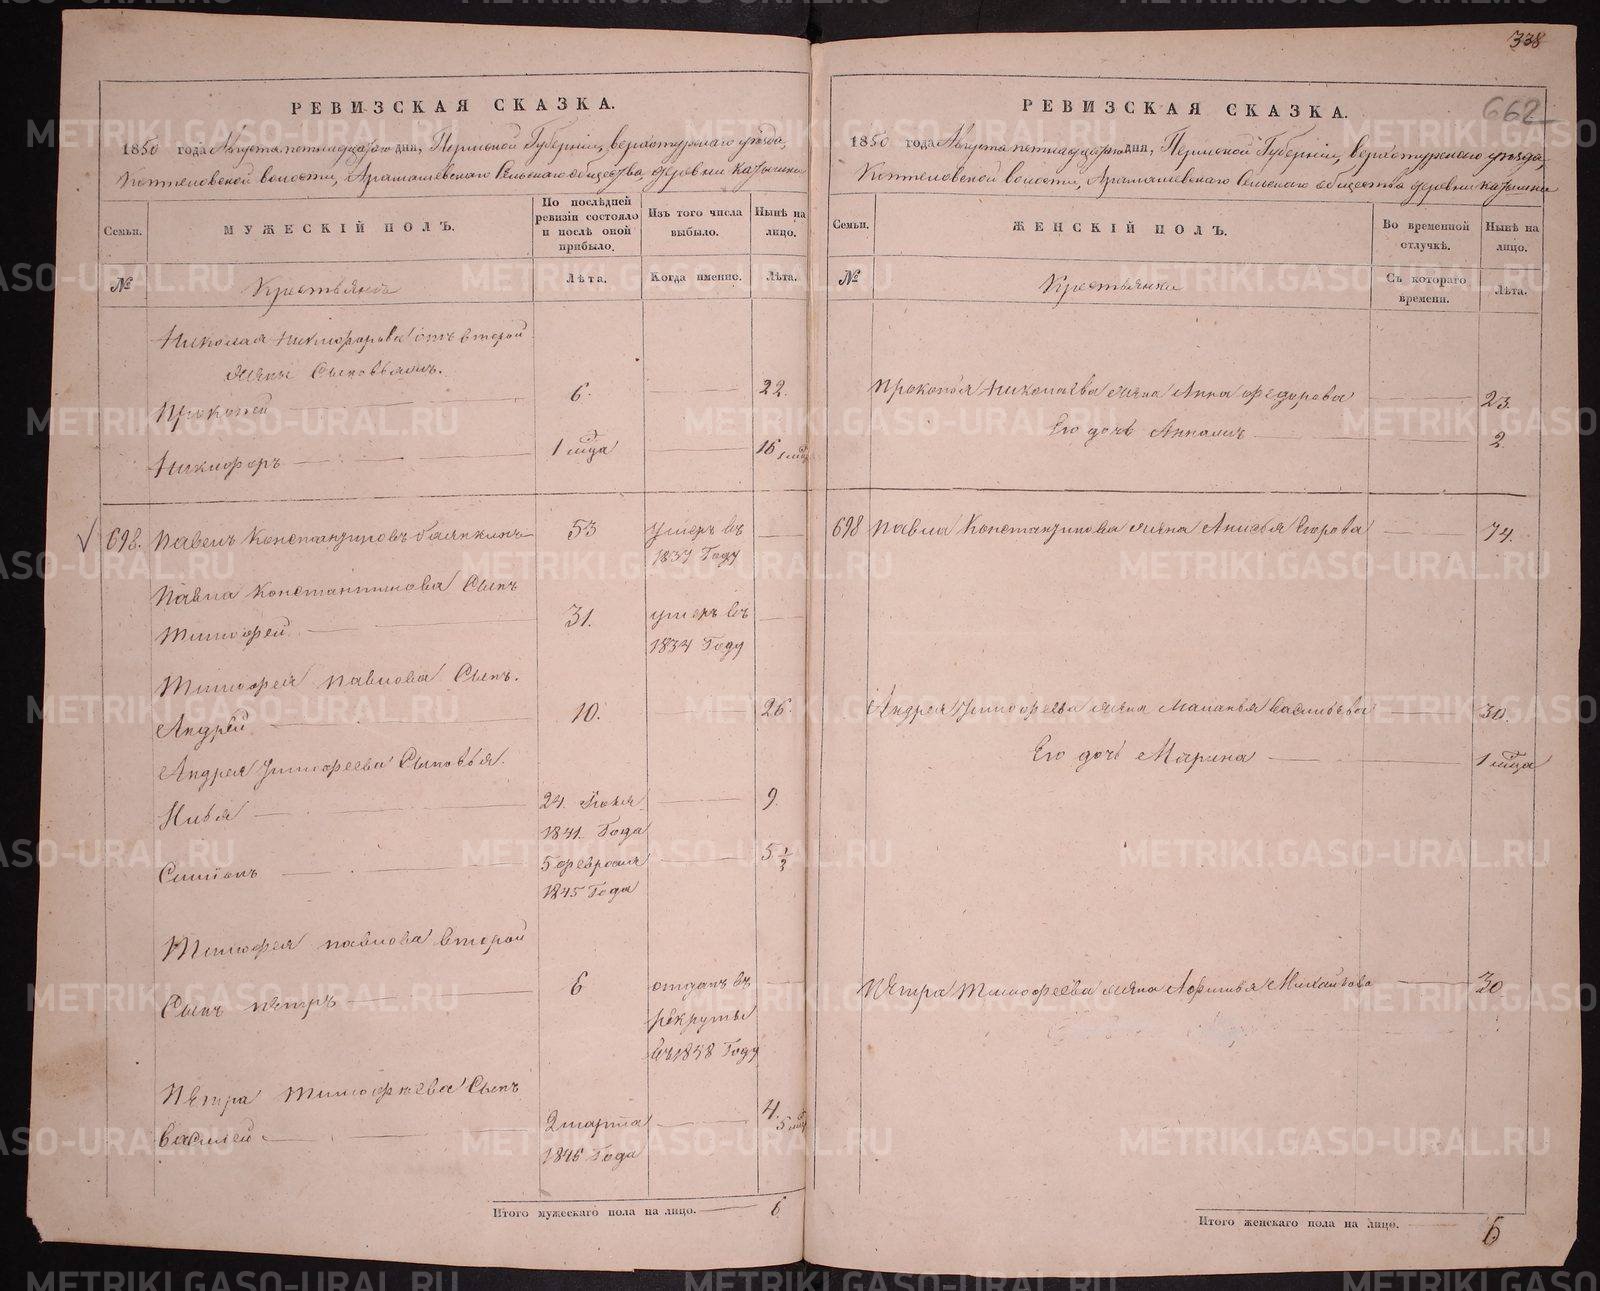 338
662
РЕВИЗСКАЯ СКАЗКА.
1850 года Августа пятнадцатаго дня, Пермской Губерніи, верхотурскаго уѣзда,
Коптеловской волости, Арамашевскаго Сельскаго общества деревни
Семьи.
МУЖЕСКІЙ ПОЛЪ.
По послѣдней ревизіи состояло и послѣ оной прибыло.
Изъ того числа выбыло.
Нынѣ на лицо.
№
Крестьянъ
Лѣта.
Когда именно.
Лѣта.
Николая Никифорова отъ второй
жены Сыновья
Прокопей 6. 22.
Никифоръ 1 мца 16
698. Павелъ Константиновъ 53 умеръ въ
1837 Году
Павла Константинова Сынъ
Тимофей 31. умеръ въ
1834 Году
Тимофея Павлова Сынъ.
Андрей 10. 26.
Андрея Тимофеева Сыновья.
Илья 24 9.
1841 Года
Симіонъ 5 февраля 5 1/2
1845 Года
Тимофея павлова второй
Сынъ пётръ 6 отданъ въ
рекруты
въ 1848 Году
Пётра Тимофеева Сынъ
василей 2 марта 4. 5 мцъ
1846 Года
Итого мужескаго пола на лицо. 6
РЕВИЗСКАЯ СКАЗКА.
1850 года Августа пятнадцатаго дня, Пермской Губерніи, верхотурскаго уѣзда,
Коптеловской волости, Арамашевскаго Сельскаго общества деревни
Семьи.
ЖЕНСКІЙ ПОЛЪ.
Во временной отлучкѣ.
Нынѣ на лицо.
№
Крестьянки
Съ котораго времени.
Лѣта.
Прокопья Николаева жена Анна Федорова 23.
Его дочь 2
698 Павла Константинова жена Анисья Егорова 74.
Андрея Тимофеева жена Маланья васильева 30.
Его дочь Марина 1 мца
Пётра Тимофеева жена Афимья Михайлова 30
Итого женскаго пола на лицо. 6
METRIKI.GASO-URAL.RU